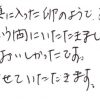 に入った卵のようで
う間にいただきまし
おいしかったです。
せていただきます。